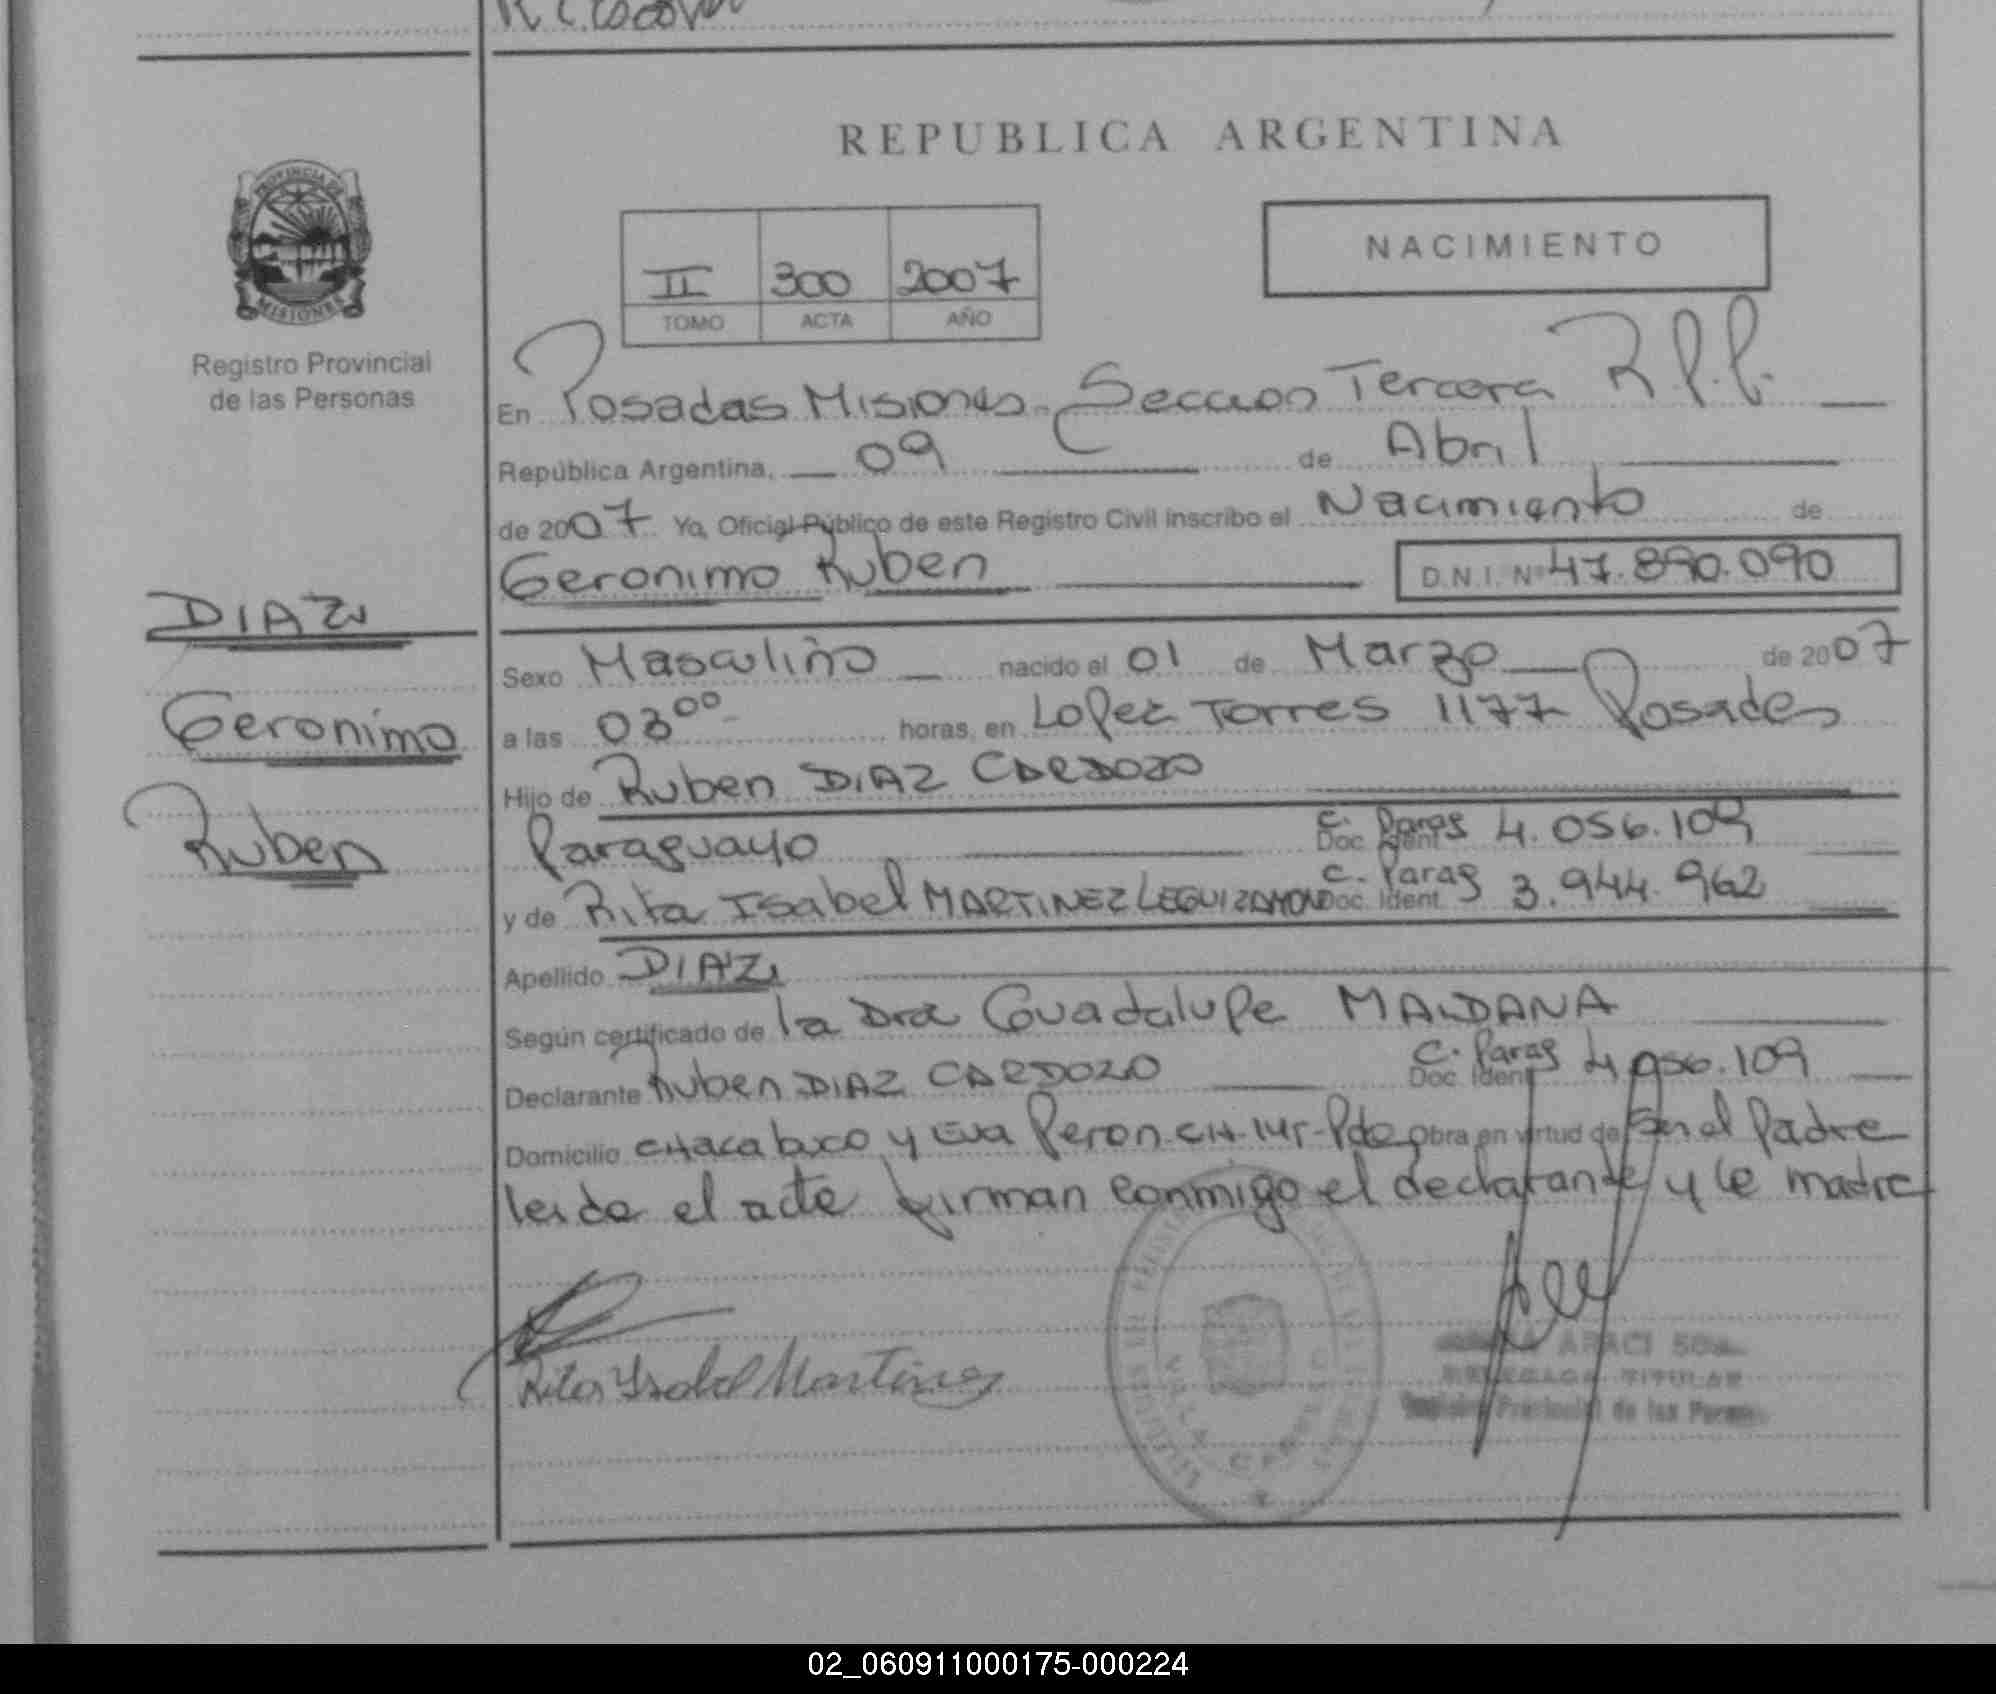 REPUBLICA ARGENTINA
PROVINCIA DE
MISIONES
Registro Provincial
de las Personas
II 300 2007
TOMO ACTA AÑO
NACIMIENTO
En Posadas Misiones. Seccion Tercera R.P.P.
República Argentina, 09 de Abril
de 2007 Yo, Oficial Público de este Registro Civil inscribo el Nacimiento de
Geronimo Ruben D.N.I. Nº 47.890.090
DIAZ
Geronimo
Ruben
Sexo Masculino nacido el 01 de Marzo de 2007
a las 03 00 horas, en Lopez Torres 1177 Posadas
Hijo de Ruben DIAZ CARDOZO
Paraguayo C. Parag Doc Ident 4.056.109
y de Rita Isabel MARTINEZ LEGUIZAMON C. Parag Doc. Ident 3.944.962
Apellido DIAZ
Según certificado de la Dra Guadalupe MALDANA
Declarante Ruben DIAZ CARDOZO C. Parag Doc Ident 4.056.109
Domicilio CHacabuco y Eva Peron CH. 145-Pdas Obra en virtud de Ser el Padre
leida el acta firman conmigo el declarante y la madre
Rita Ysabel Martinez
ARACI
DELEGADA TITULAR
Registro Provincial de las Personas
02_060911000175-000224